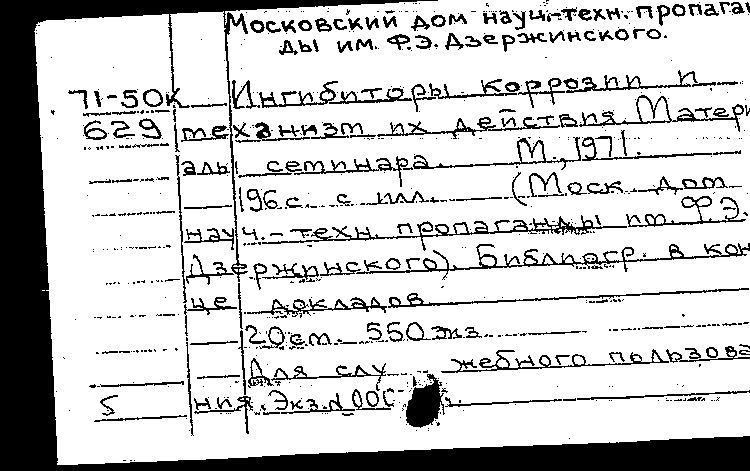 Московский дом науч.-техн. пропаган
ды им. Ф.Э. Дзержинского.
71-50к Ингибиторы коррозии и
629 механизм их действия. Матери
алы семинара. М., 1971.
196 с. с илл. (Моск. дом
науч.-техн. пропаганды им. Ф.Э.
Дзержинского). Библиогр. в кон
це докладов
20см. 550 экз.
Для служебного пользова
5 ния. Экз.№ 000